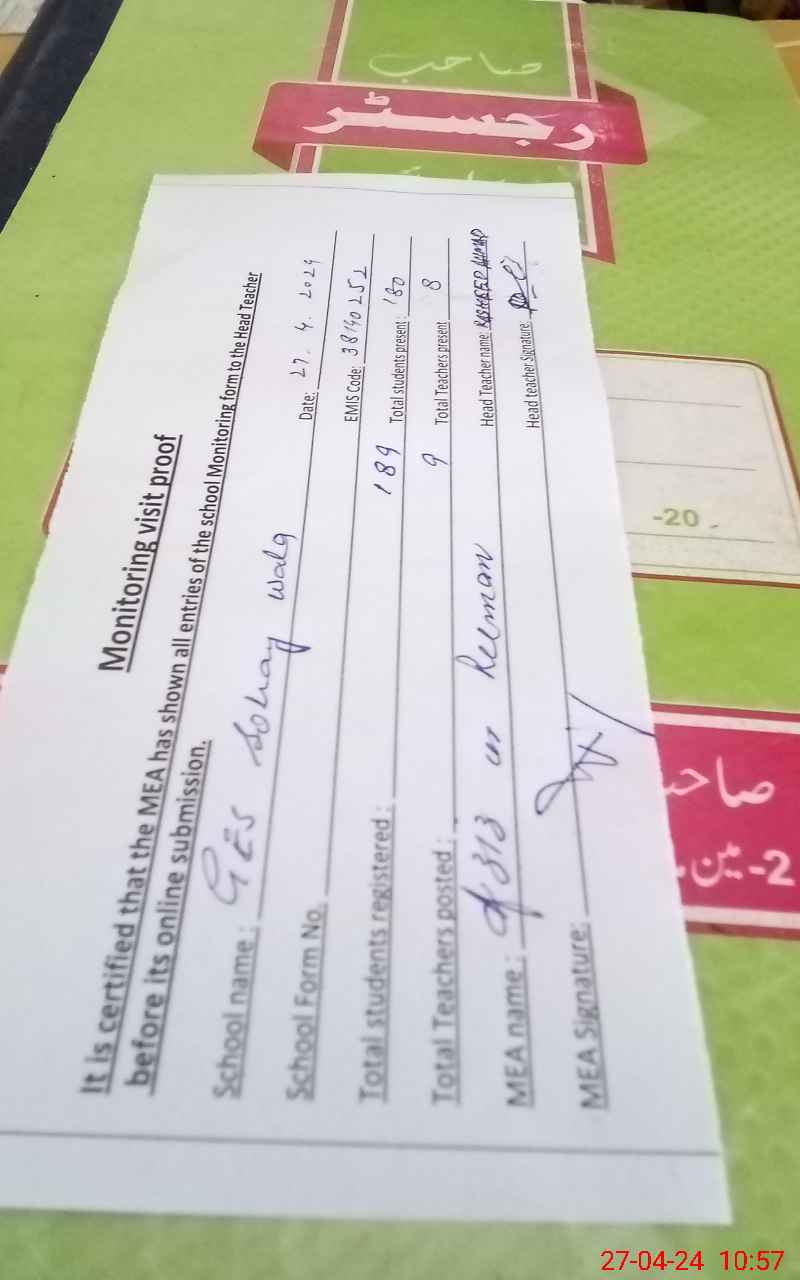 صاحب
رجسٹر
Monitoring visit proof
It is certified that the MEA has shown all entries of the school Monitoring form to the Head Teacher
before its online submission.
School name: GES Sohay wala Date: 27.4.2024
School Form No. EMIS Code: 38140252
Total students registered: 189 Total students present: 180
Total Teachers posted: 9 Total Teachers present 8
MEA name: 313 ur Rehman Head Teacher name: RASHEED AHMAD
MEA Signature: Head teacher Signature:
-20
صاحب
2-مین
27-04-24 10:57